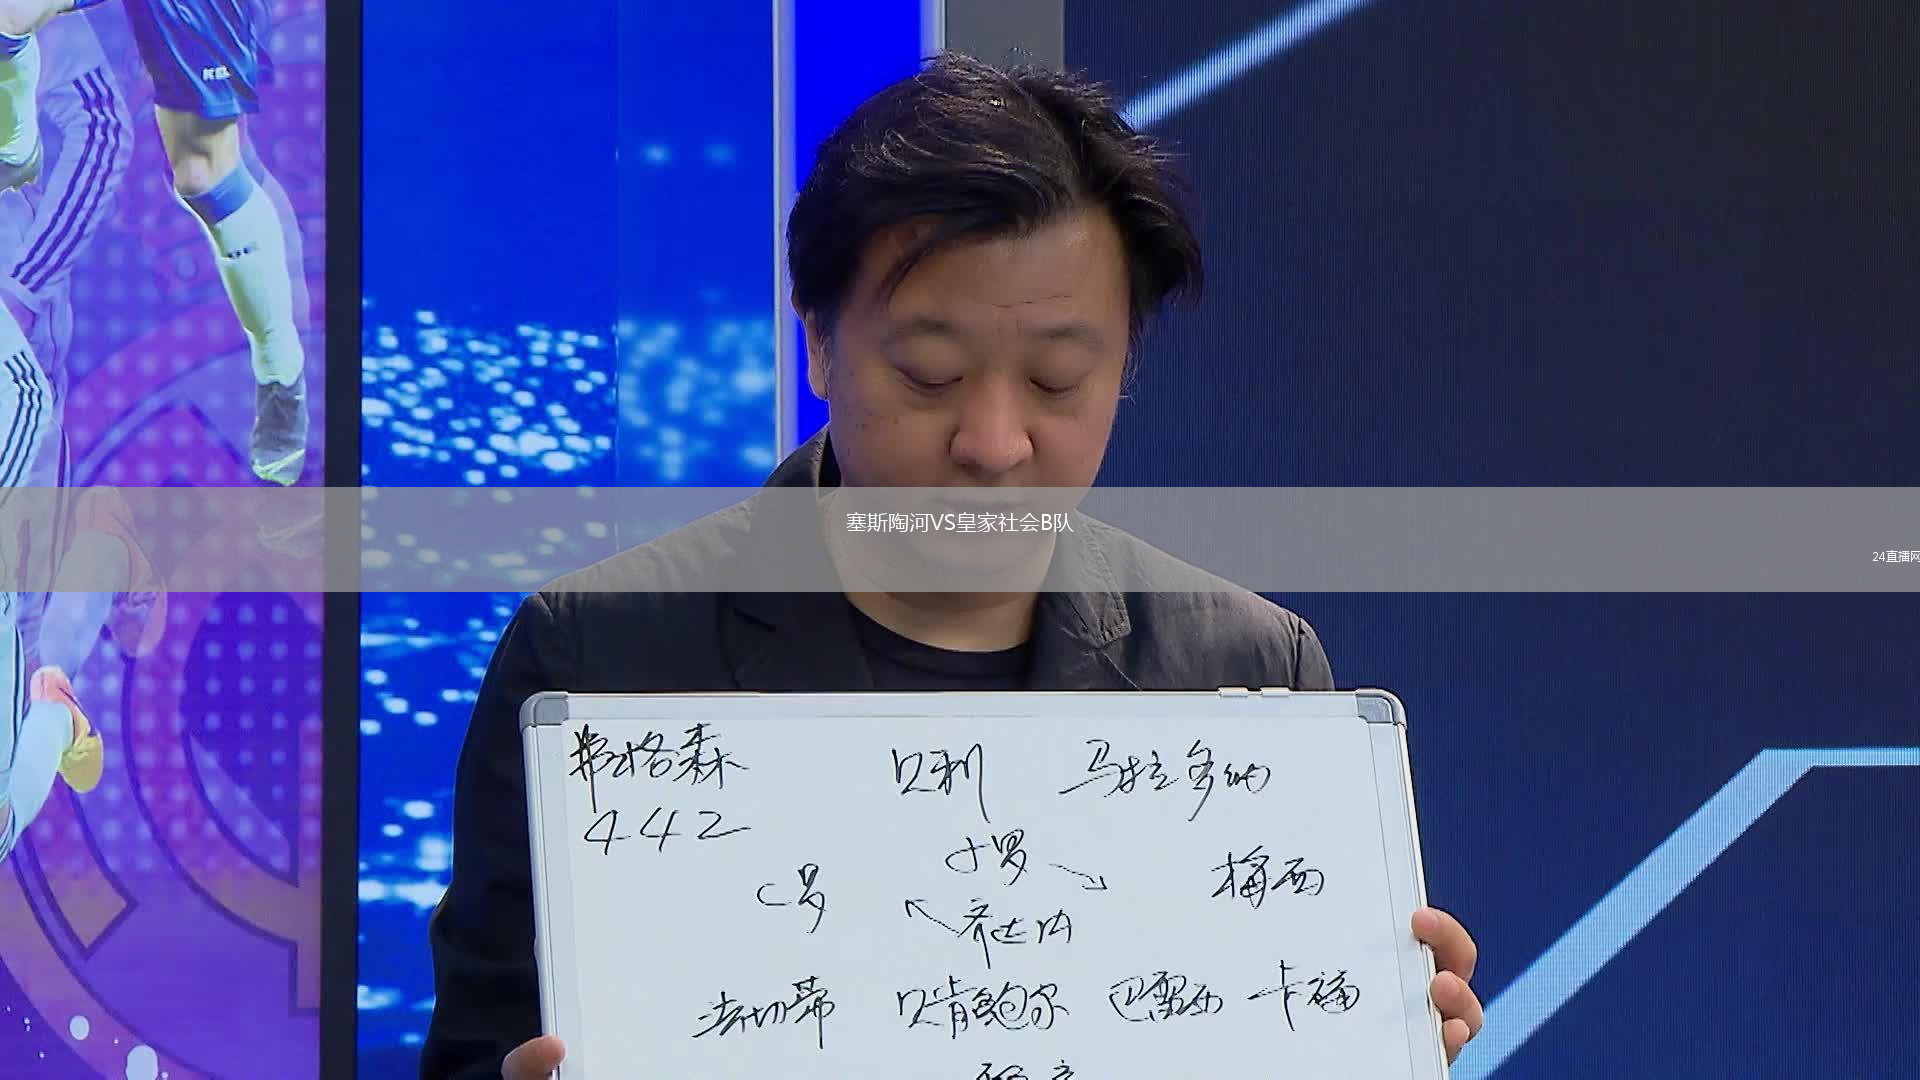 KEL
塞斯陶河VS皇家社会B队
24直播网
弗格森 贝利 马拉多纳
442
小罗
C罗 梅西
齐达内
法切蒂 贝肯鲍尔 巴雷西 卡福